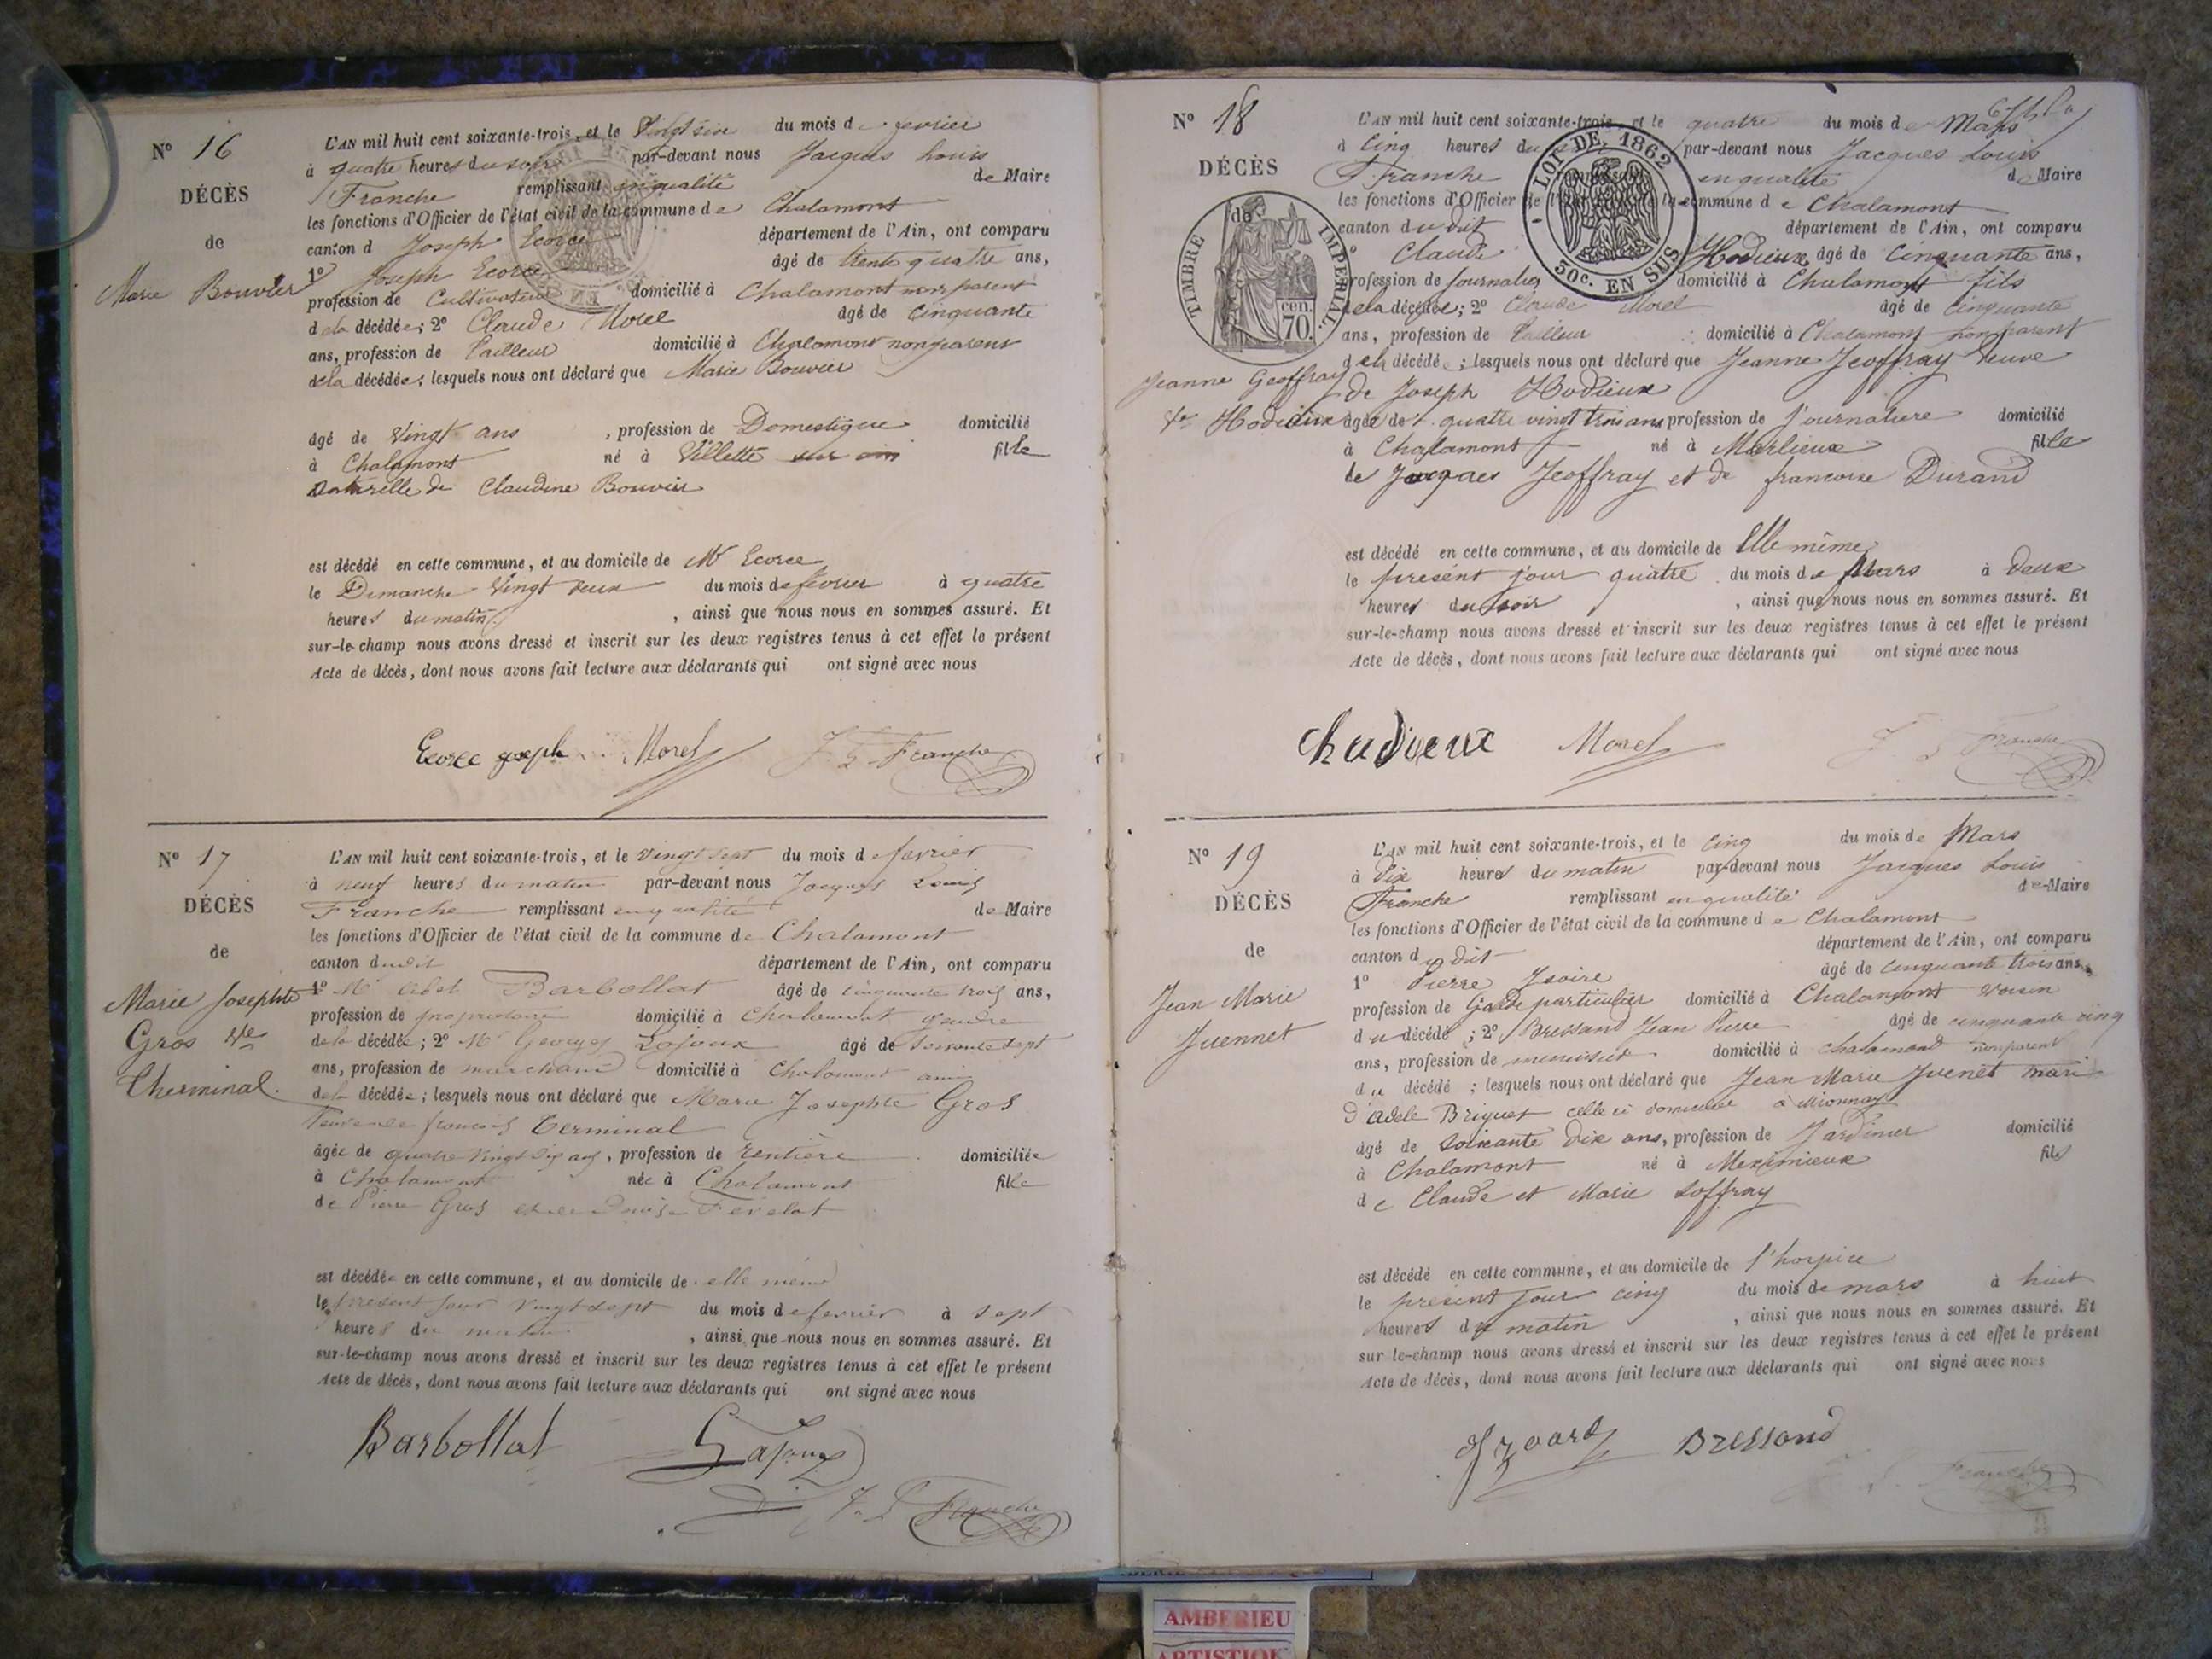 N° 16
DÉCÈS
de
Marie Bouvier
L'AN mil huit cent soixante-trois, et le vingt six du mois de fevrier
à quatre heures du soir par-devant nous Jacques Louis
Franche remplissant en qualité de Maire
les fonctions d'Officier de l'état civil de la commune de Chalamont
canton d Joseph Ecorce département de l'Ain, ont comparu
1° Joseph Ecorce âgé de trente quatre ans,
profession de Cultivateur domicilié à Chalamont non parent
de la décédée; 2° Claude Morel âgé de Cinquante
ans, profession de tailleur domicilié à Chalamont non parent
de la décédée; lesquels nous ont déclaré que Marie Bouvier
âgé de Vingt ans, profession de Domestique domicilié
à Chalamont né à Villette sur ain fille
naturelle de Claudine Bouvier
est décédé en cette commune, et au domicile de Mr Ecorce
le Dimanche Vingt deux du mois de fevrier à quatre
heures du matin, ainsi que nous nous en sommes assuré. Et
sur-le-champ nous avons dressé et inscrit sur les deux registres tenus à cet effet le présent
Acte de décès, dont nous avons fait lecture aux déclarants qui ont signé avec nous
Ecorce joseph Morel J. L. Franche
N° 17
DÉCÈS
de
Marie Josephte
Gros Ve
Therminal.
L'AN mil huit cent soixante-trois, et le vingt sept du mois de fevrier
à neuf heures du matin par-devant nous Jacques Louis
Franche remplissant en qualité de Maire
les fonctions d'Officier de l'état civil de la commune de Chalamont
canton dudit département de l'Ain, ont comparu
1° Mr Barbollat âgé de cinquante trois ans,
profession de proprietaire domicilié à Chalamont gendre
de la décédée; 2° Mr Georges Lajoux âgé de soixante sept
ans, profession de marchand domicilié à Chalamont ami
de la décédée; lesquels nous ont déclaré que Marie Josephte Gros
Veuve de françois Terminal
âgée de quatre vingt six ans, profession de rentière domiciliée
à Chalamont née à Chalamont fille
de Pierre Gros et de Fevelat
est décédée en cette commune, et au domicile de elle même
le présent jour vingt sept du mois de fevrier à sept
heures du matin, ainsi que nous nous en sommes assuré. Et
sur-le-champ nous avons dressé et inscrit sur les deux registres tenus à cet effet le présent
Acte de décès, dont nous avons fait lecture aux déclarants qui ont signé avec nous
Barbollat Lajoux
J. L. Franche
N° 18
DÉCÈS
de
TIMBRE IMPERIAL.
70. cen.
Jeanne Geoffray
Ve Hodieux
LOI DE 1862
50c. EN SUS
L'AN mil huit cent soixante-trois, et le quatre du mois de Mars
à Cinq heures du par-devant nous Jacques Louis
Franche en qualité de Maire
les fonctions d'Officier de l'état civil de la commune de Chalamont
canton du dit département de l'Ain, ont comparu
1° Claude Hodieux âgé de Cinquante ans,
profession de Journalier domicilié à Chalamont fils
de la décédée; 2° Claude Morel âgé de Cinquante
ans, profession de tailleur domicilié à Chalamont non parent
de la décédé; lesquels nous ont déclaré que Jeanne Jeoffray Veuve
de Joseph Hodieux
âgée de quatre vingt trois ans profession de Journaliere domicilié
à Chalamont né à Marlieux fille
de Jacques Jeoffray et de francoise Durand
est décédé en cette commune, et au domicile de Elle même
le présent jour quatre du mois de Mars à deux
heures du soir, ainsi que nous nous en sommes assuré. Et
sur-le-champ nous avons dressé et inscrit sur les deux registres tenus à cet effet le présent
Acte de décès, dont nous avons fait lecture aux déclarants qui ont signé avec nous
Chudieux Morel J. L. Franche
N° 19
DÉCÈS
de
Jean Marie
Juennet
L'AN mil huit cent soixante-trois, et le Cinq du mois de Mars
à Dix heures du matin par-devant nous Jacques Louis
Franche remplissant en qualité de Maire
les fonctions d'Officier de l'état civil de la commune de Chalamont
canton du dit département de l'Ain, ont comparu
1° Pierre Isoire âgé de Cinquante trois ans,
profession de Garde particulier domicilié à Chalamont voisin
du décédé; 2° Bressand Jean Pierre âgé de cinquante cinq
ans, profession de menuisier domicilié à chalamond non parent
du décédé; lesquels nous ont déclaré que Jean Marie Juenet mari
d'adele Briquet celle ci domiciliée à Mionnay
âgé de Soixante Dix ans, profession de Jardinier domicilié
à Chalamont né à Meximieux fils
de Claude et Marie Loffray
est décédé en cette commune, et au domicile de l'hospice
le présent Jour cinq du mois de mars à huit
heures du matin, ainsi que nous nous en sommes assuré. Et
sur le-champ nous avons dressé et inscrit sur les deux registres tenus à cet effet le présent
Acte de décès, dont nous avons fait lecture aux déclarants qui ont signé avec nous
Bressond
Franche
AMBERIEU